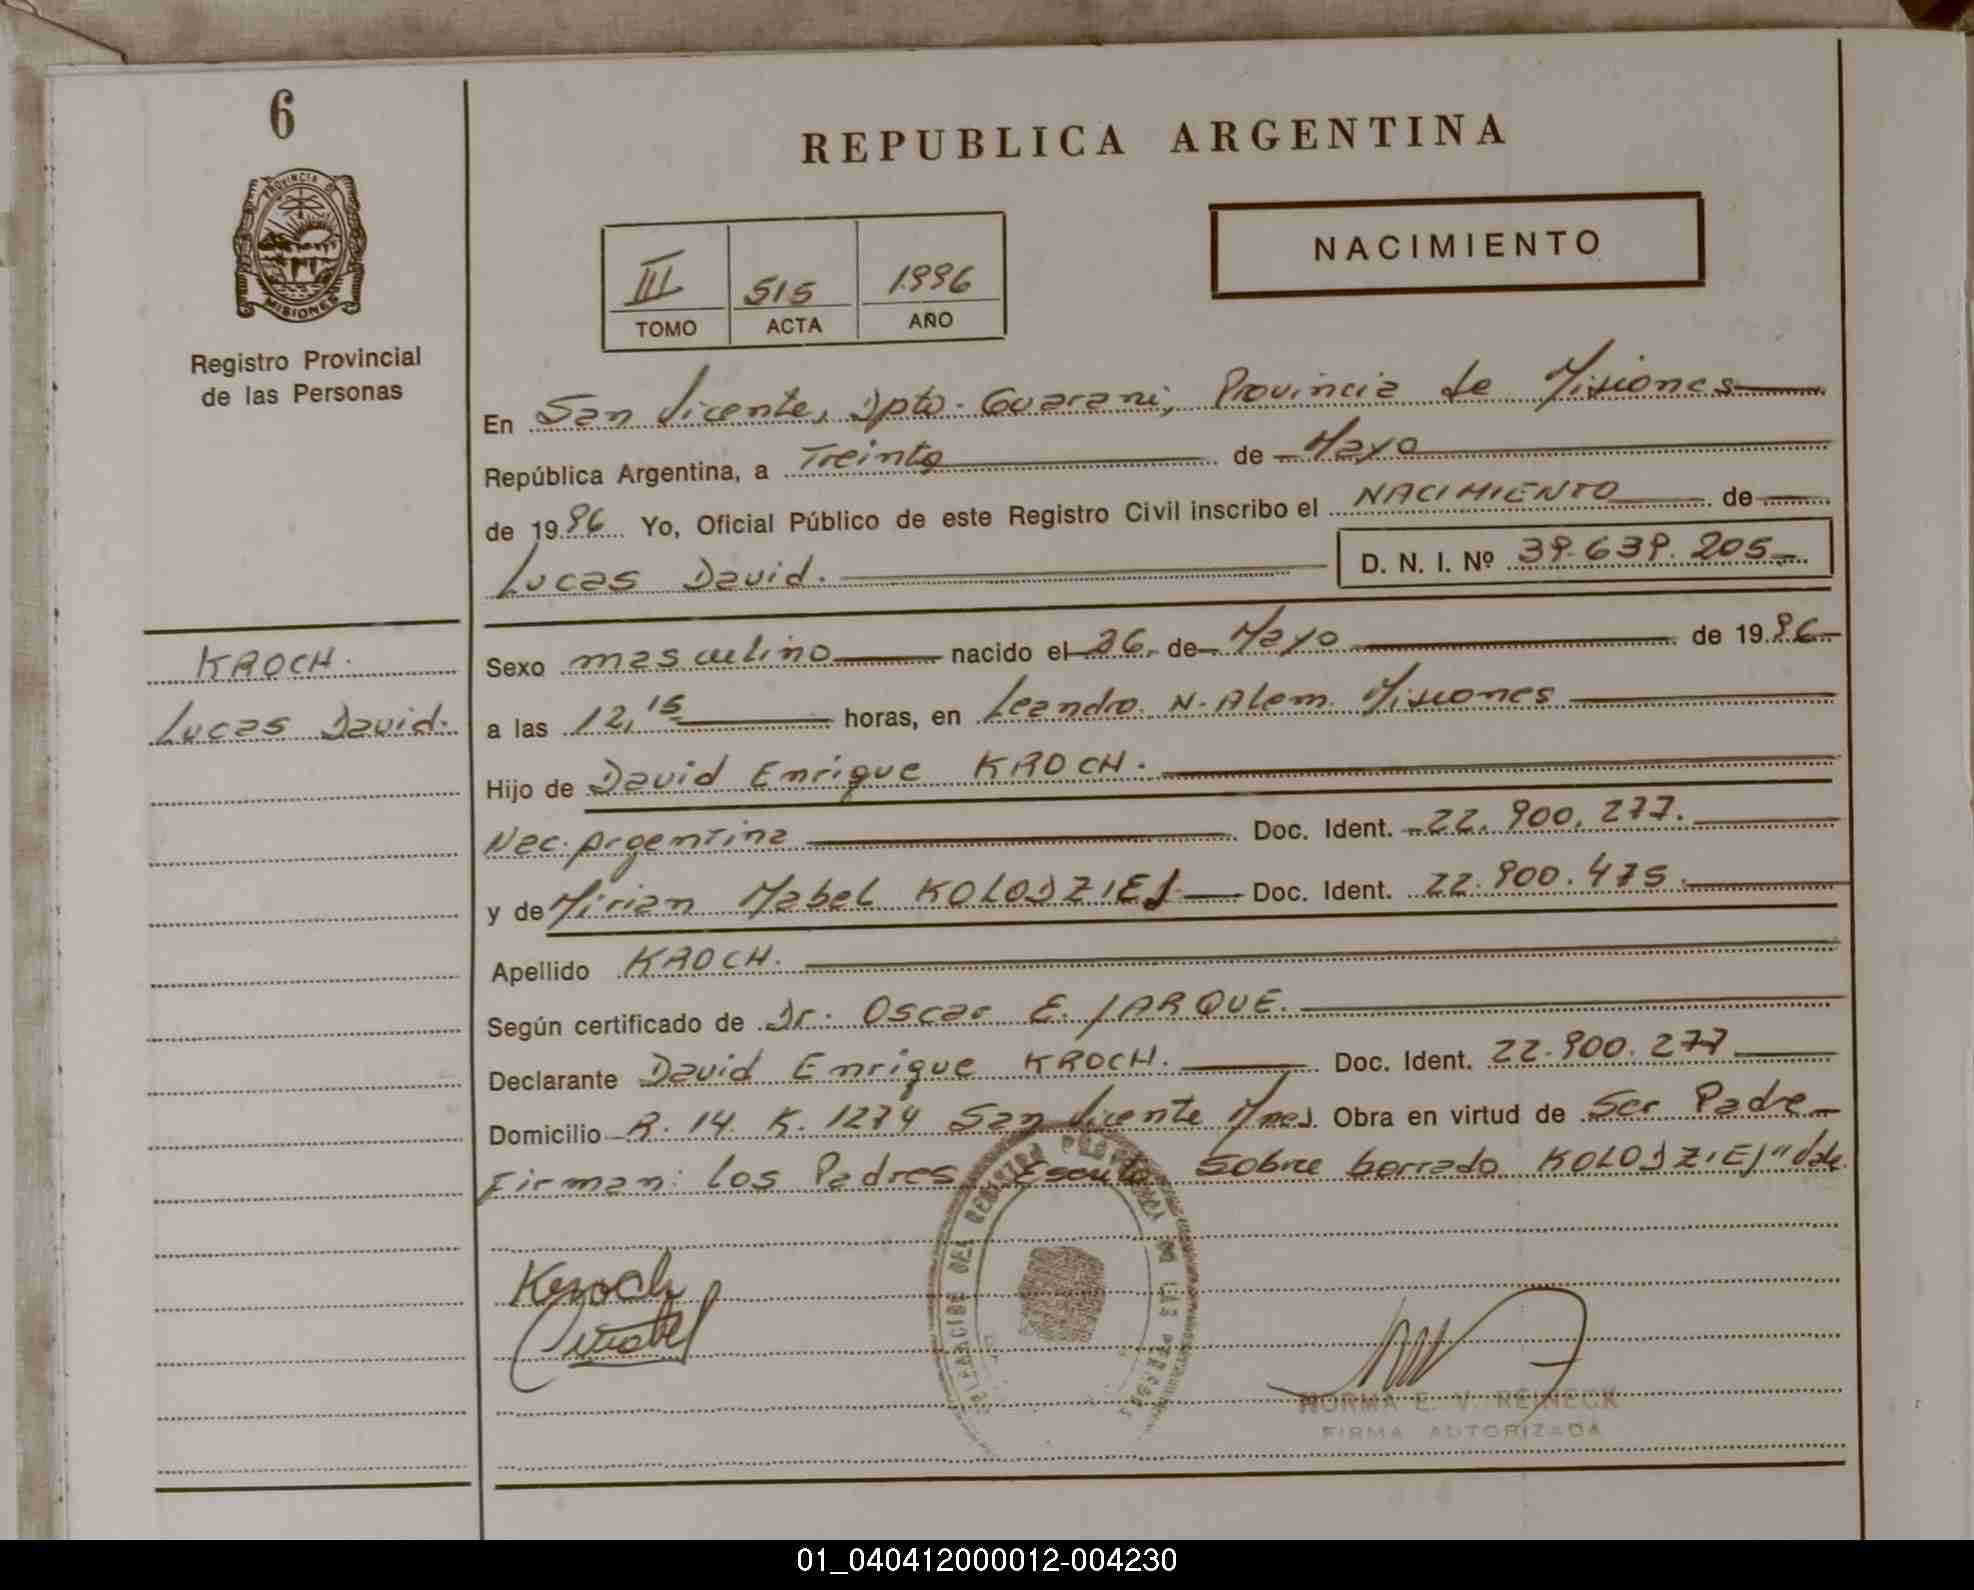 6
REPUBLICA ARGENTINA
PROVINCIA DE
MISIONES
NACIMIENTO
III 515 1.996
TOMO ACTA AÑO
Registro Provincial
de las Personas
En San Vicente, Dpto. Guarani, Provincia de Misiones
República Argentina, a Treinta de Mayo
de 19 96 Yo, Oficial Público de este Registro Civil inscribo el NACIMIENTO de
Lucas David. D. N. I. Nº 39.639.205
KROCH.
Lucas David.
Sexo masculino nacido el 26 de Mayo de 19 96
a las 12,15 horas, en Leandro. N. Alem. Misiones
Hijo de David Enrique KROCH.
Nac. Argentina Doc. Ident. 22.900.277.
y de Mirian Mabel KOLODZIEJ Doc. Ident. 22.900.475.
Apellido KROCH.
Según certificado de Dr. Oscar E. JARQUE.
Declarante David Enrique KROCH. Doc. Ident. 22.900.277
Domicilio R. 14. K. 1274 San Vicente Mnes. Obra en virtud de Ser Padre
Firman: los Padres. Escrito Sobre borrado KOLODZIEJ" Vale.
Kroch
DEL REGISTRO PROVINCIAL DE LAS PERSONAS
NORMA E. V. REINECK
FIRMA AUTORIZADA
01_040412000012-004230